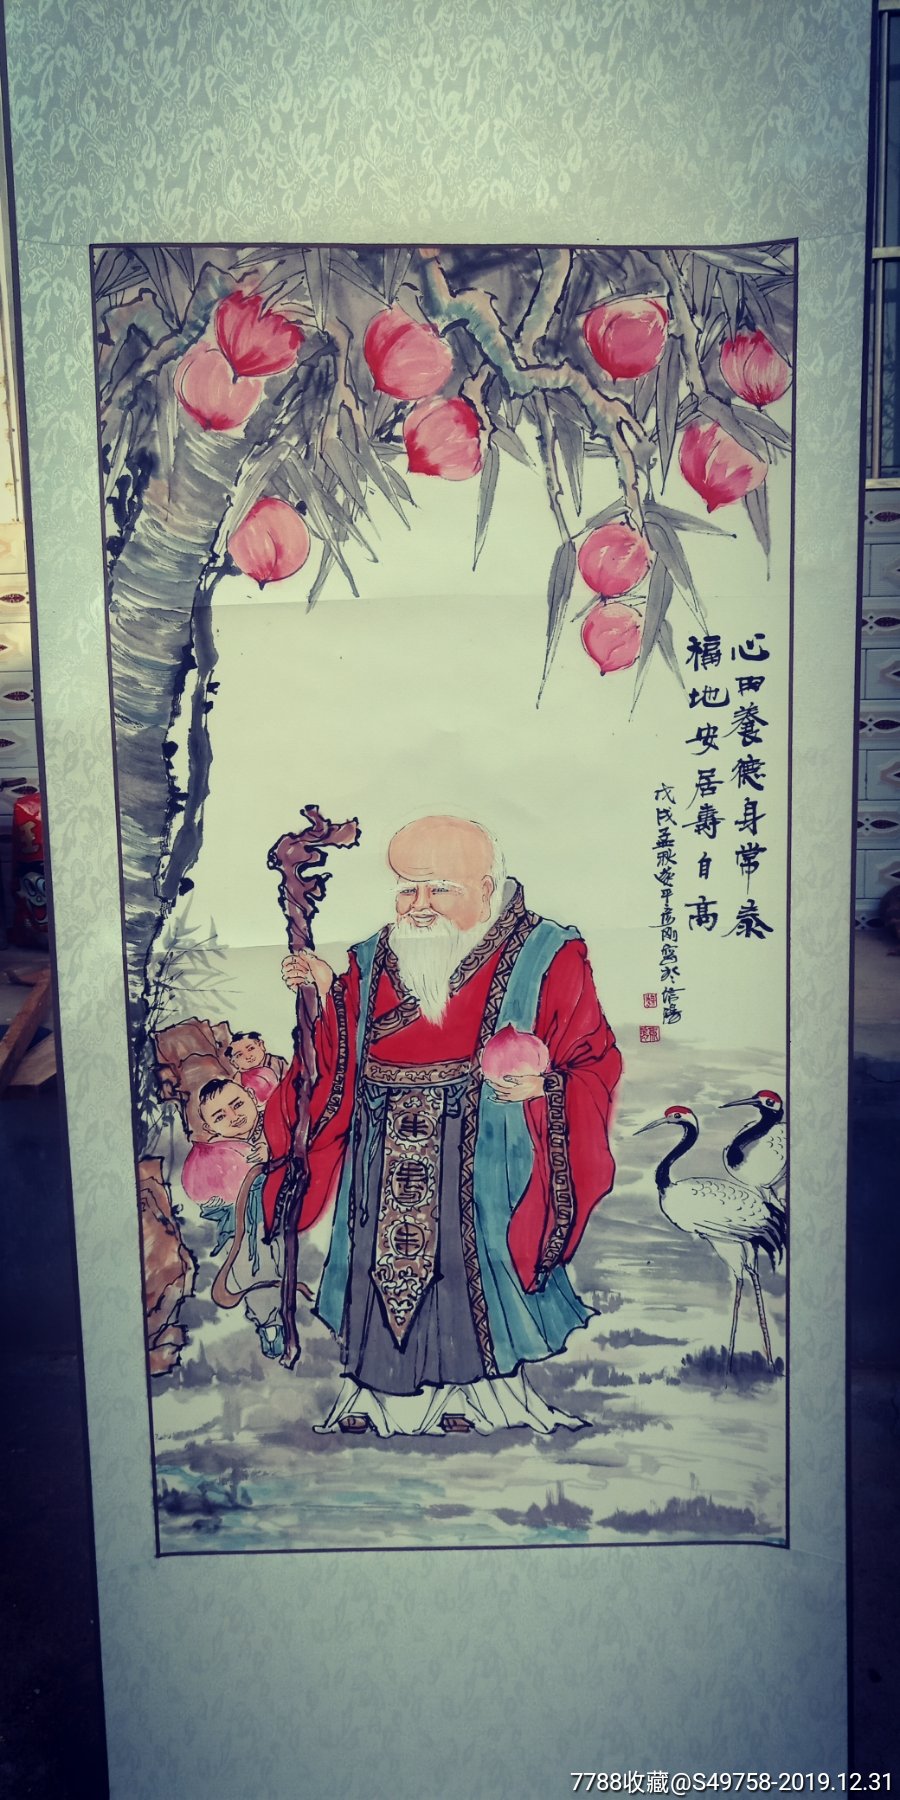 心田養德身常泰
福地安居壽自高
戊戌孟秋遂平彦刚寫於信陽
壽
7788收藏@S49758-2019.12.31